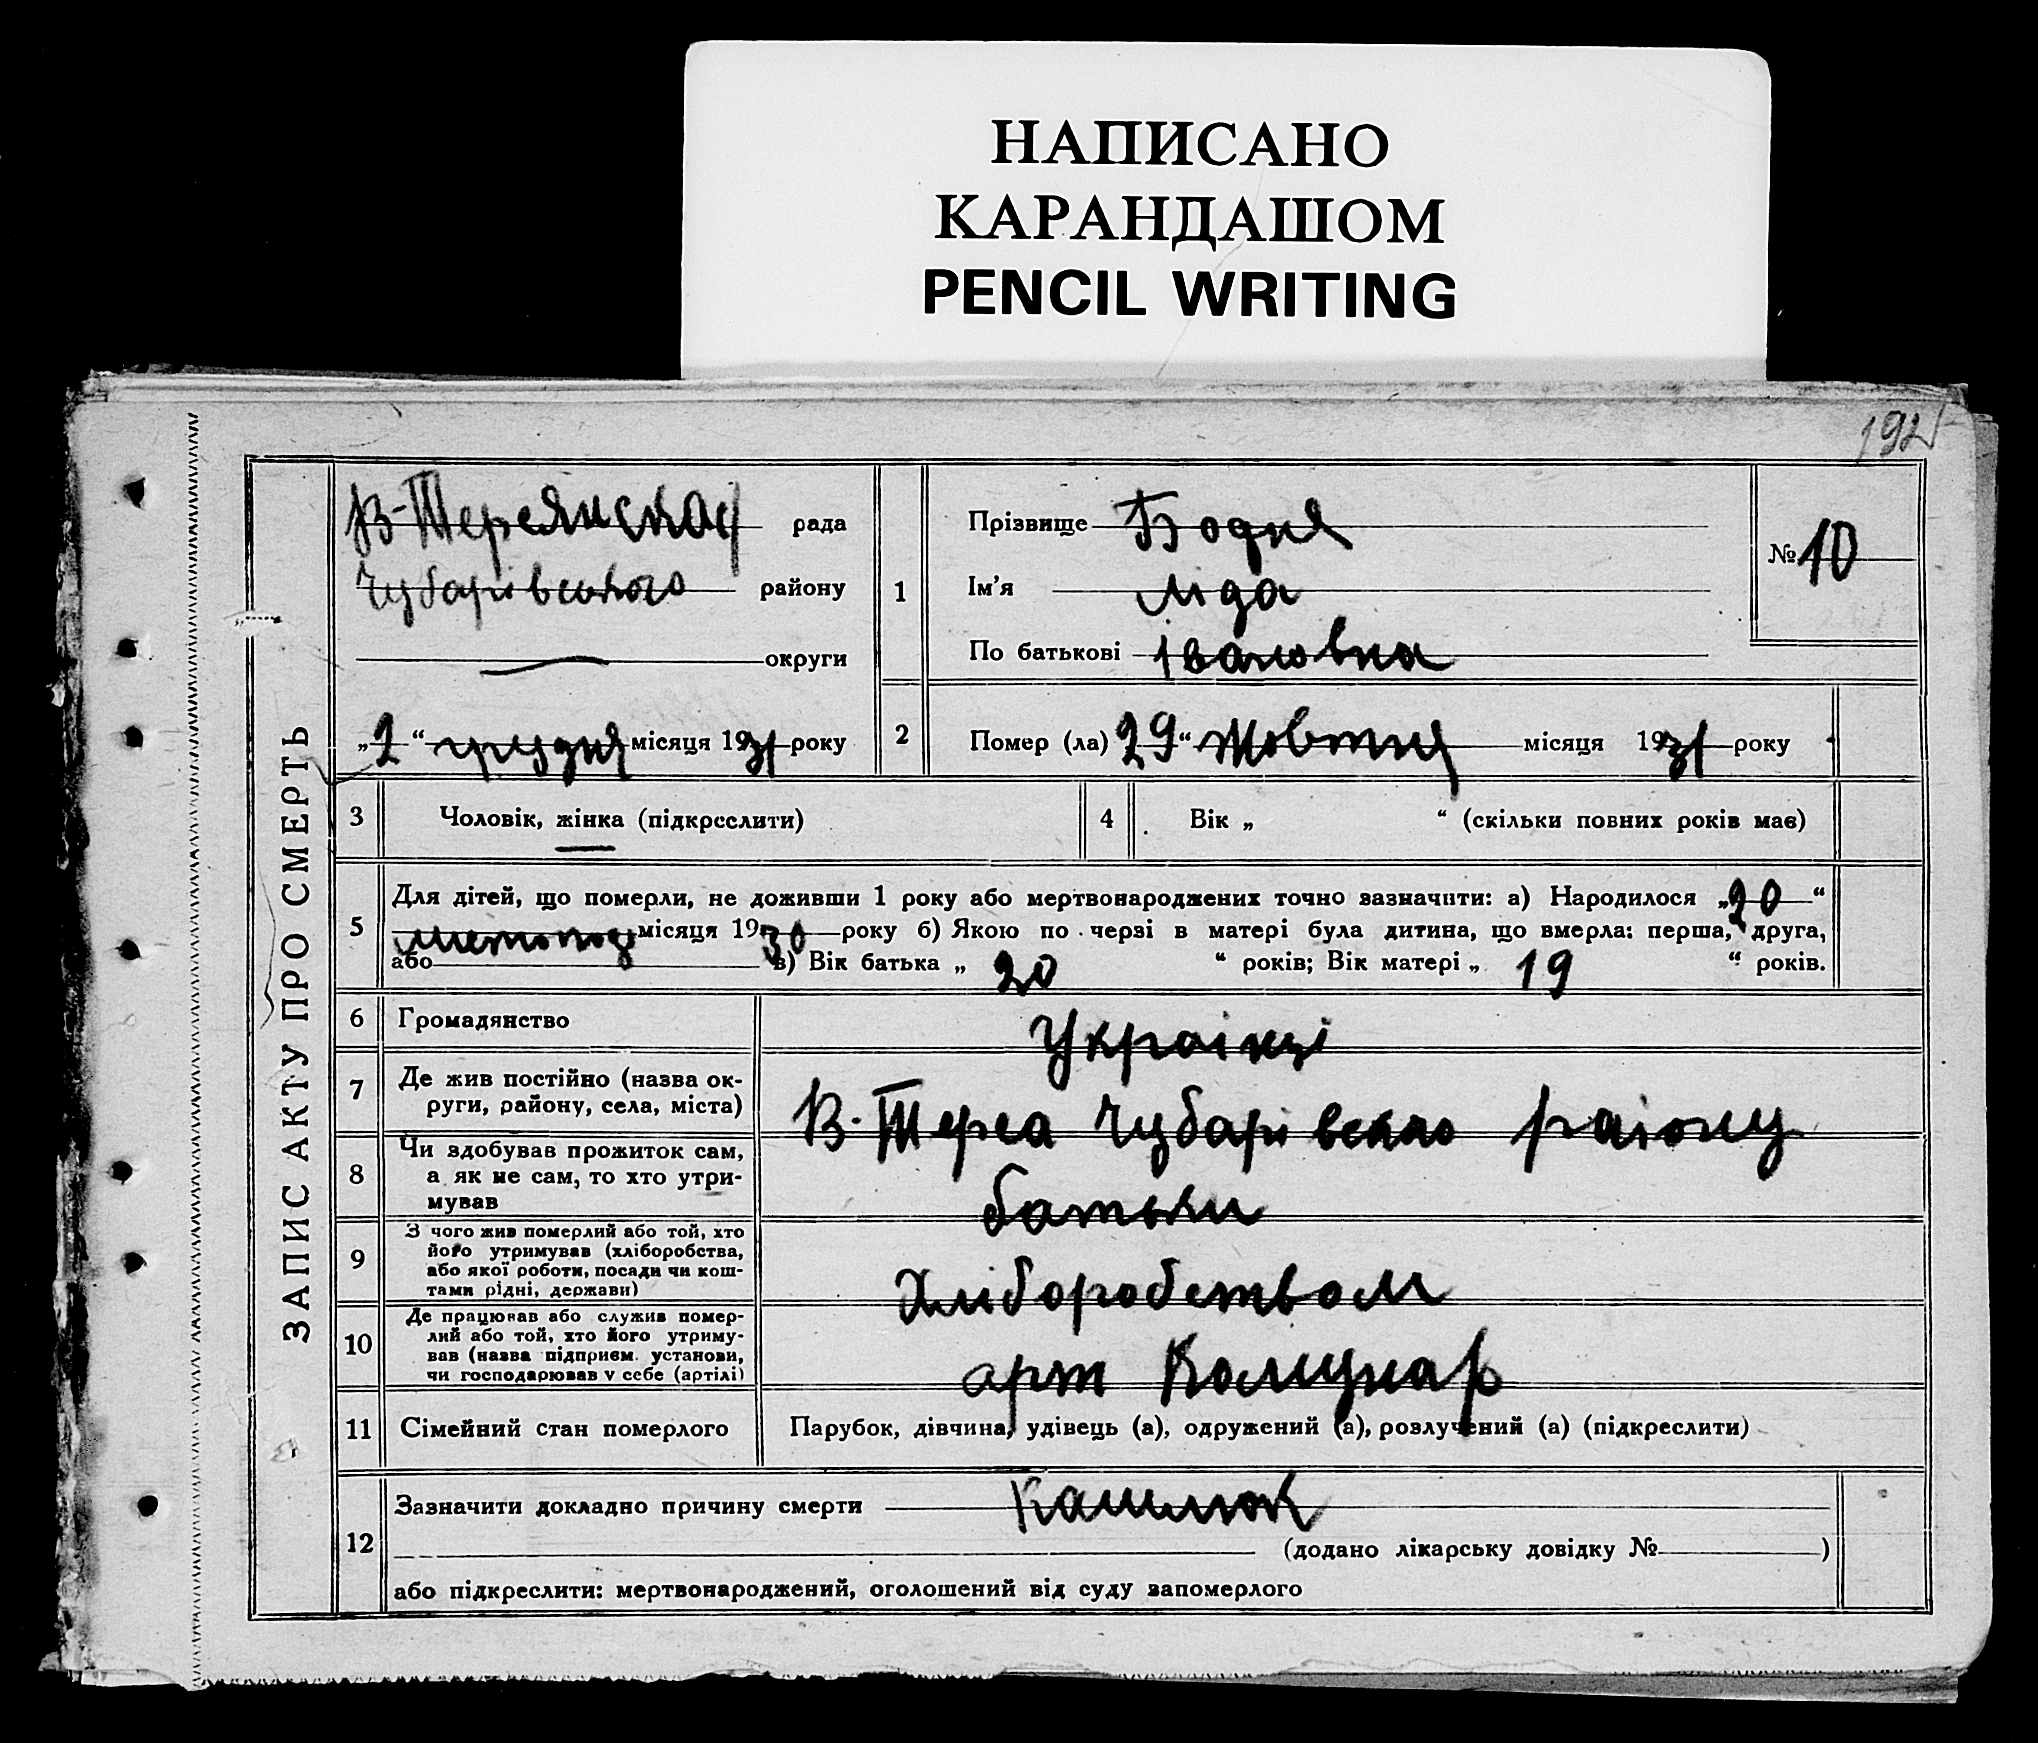 НАПИСАНО
КАРАНДАШОМ
PENCIL WRITING
192
ЗАПИС АКТУ ПРО СМЕРТЬ
рада
Чубарівського району
округи
„2“ грудня місяця 1931 року
1
Прізвище Бодня
Ім'я Ліда
По батькові Івановна
№ 10
2
Помер (ла) 29“ Жовтня місяця 1931 року
3
Чоловік, жінка (підкреслити)
4
Вік „ “ (скільки повних років має)
5
Для дітей, що померли, не доживши 1 року або мертвонароджених точно зазначити: а) Народилося „20“
листопад місяця 1930 року б) Якою по черзі в матері була дитина, що вмерла: перша, друга,
або в) Вік батька „ 20 “ років; Вік матері „ 19 “ років.
6
Громадянство
Украінці
7
Де жив постійно (назва ок-
руги, району, села, міста)
В. Терса Чубарівского раіону
8
Чи здобував прожиток сам,
а як не сам, то хто утри-
мував
батьки
9
З чого жив померлий або той, хто
його утримував (хліборобства,
або якої роботи, посади чи кош-
тами рідні, держави)
Хліборобством
10
Де працював або служив помер-
лий або той, хто його утриму-
вав (назва підприєм. установи,
чи господарював у себе (артілі)
арт
11
Сімейний стан померлого
Парубок, дівчина, удівець (а), одружений (а), розлучений (а) (підкреслити)
12
Зазначити докладно причину смерти Кашлюк
(додано лікарську довідку № )
або підкреслити: мертвонароджений, оголошений від суду запомерлого